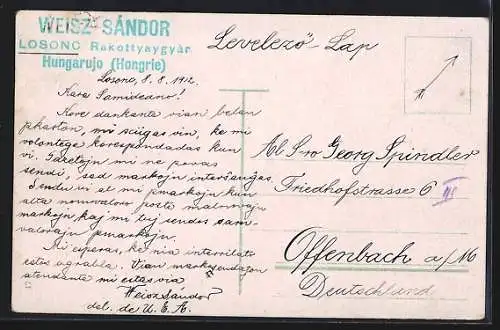 WEISZ SÁNDOR
LOSONC Rakottyaygyár
Hungarujo (Hongrie)
Levelező-Lap
Losonc, 8.8. 1912.
Kara Samideano!
Kore dankante vian belan
pkarton, mi sciigas vin, ke mi
volontege korespondadas kun
vi. Gazetojn mi ne povas
sendi, sed markojn interŝanĝas
Sendu vi al mi pmarkojn kun
alta nomvaloro poste malnovajn
markojn, kaj mi tuj sendos sam-
valorajn pmarkojn.
Mi esperas, ke nia interrilato
estos agrabla. Vian markosendaĵon
atendante mi estas via
Weisz Sándor
del. de U.E.A.
Al S-ro Georg Spindler
Friedhofstrasse 6 III
Offenbach a/M
Deutschland